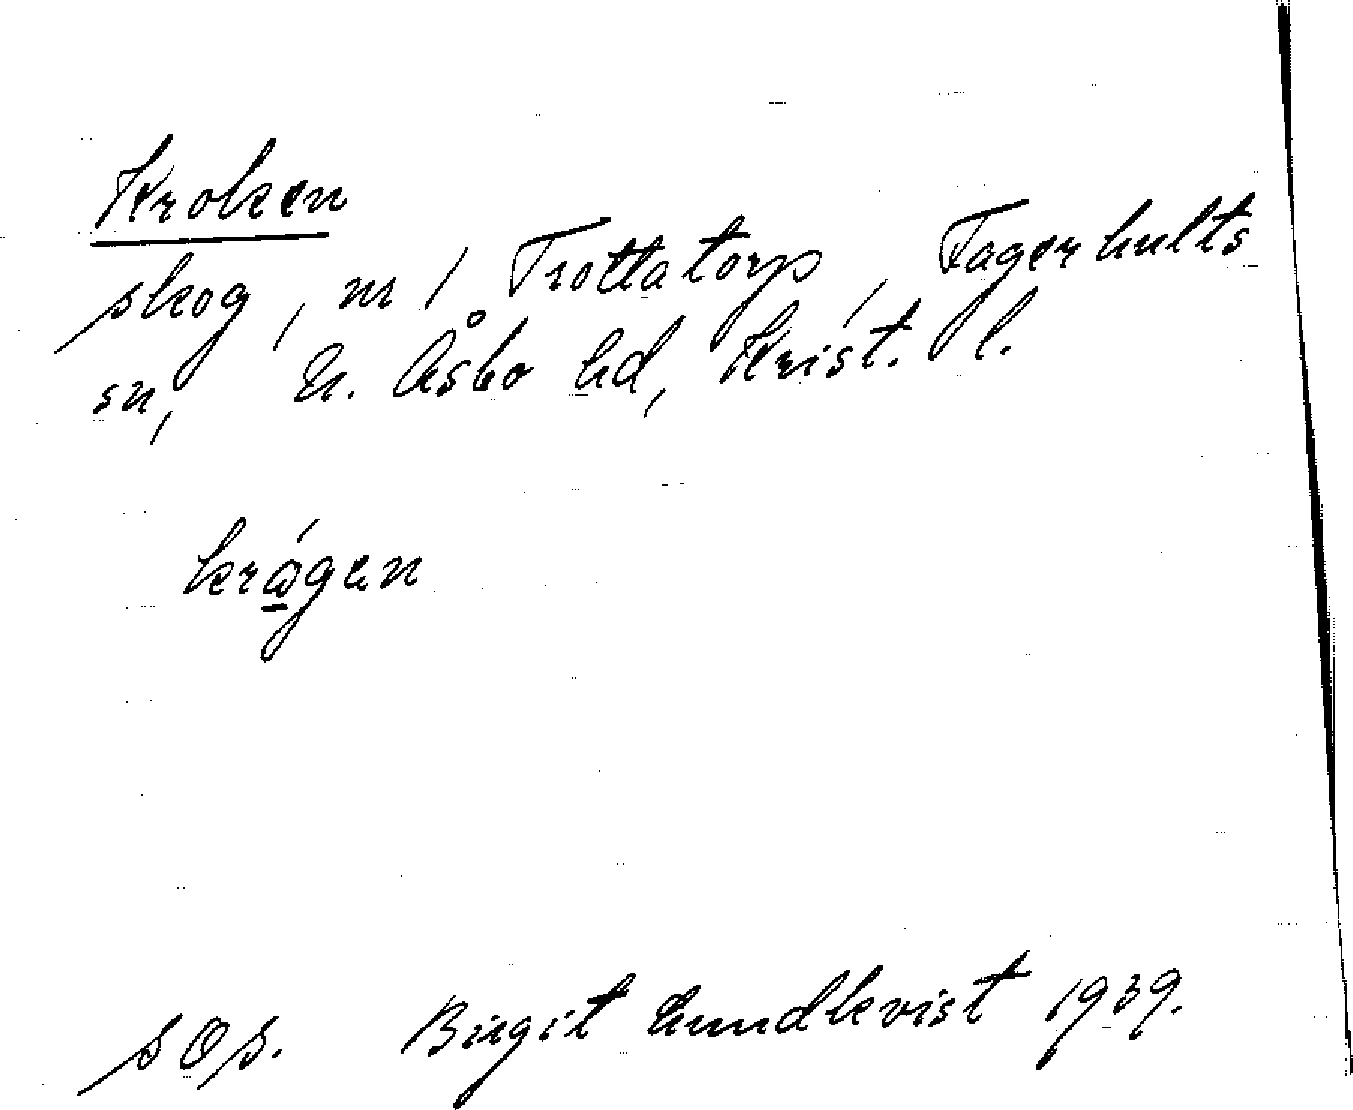 Kroken
skog, nr 1 Trottatorp, Fagerhults
sn, N. Åsbo hd, Krist. l.
krågen
s O s. Birgit Lundkvist 1939.